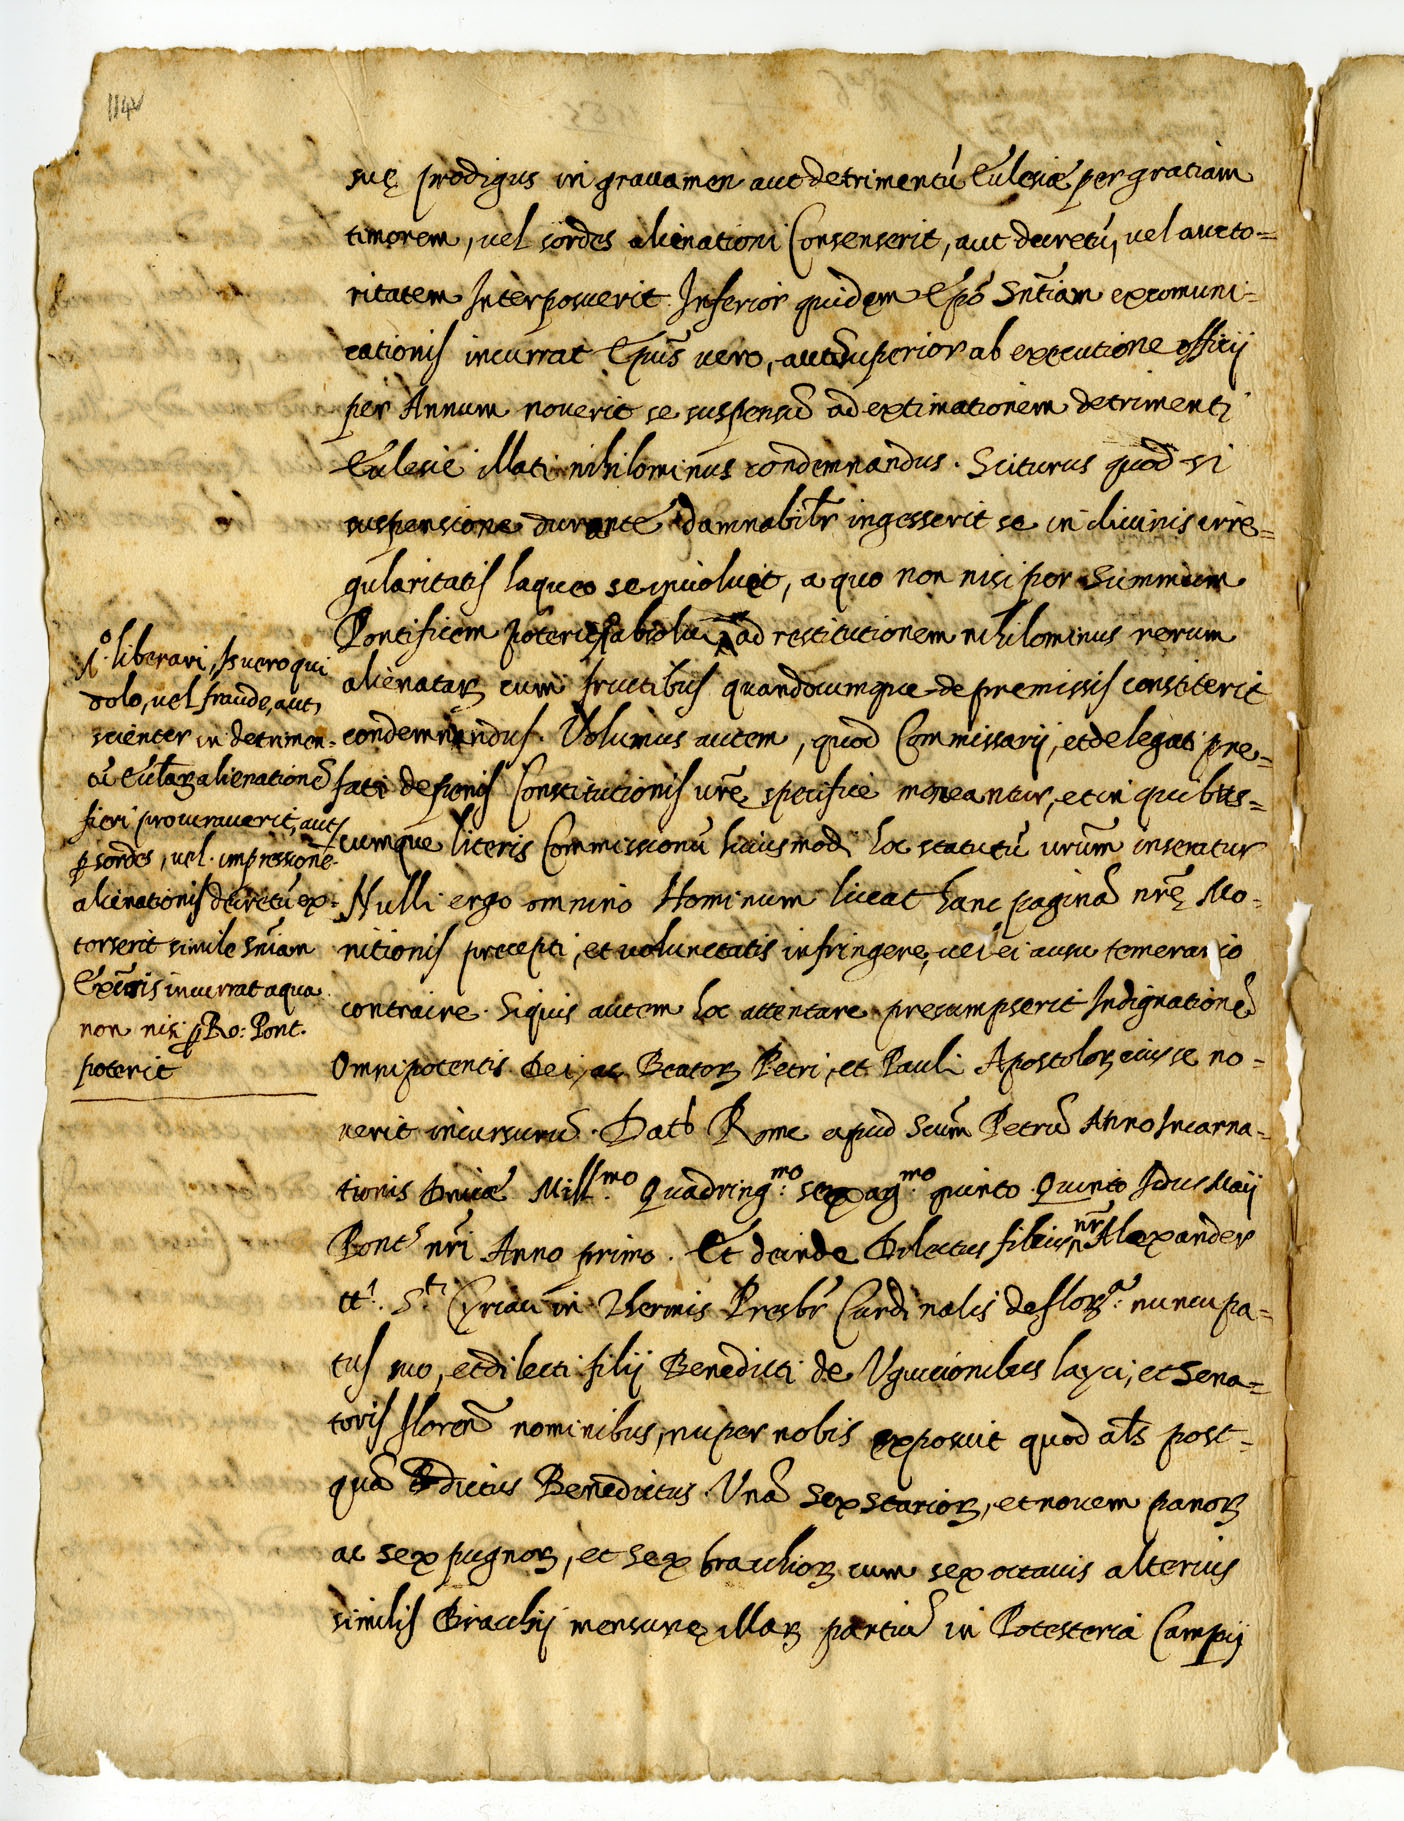 114v
suę prodigus in grauamen aut detrimentũ Ecclesiæ per gratiam
timorem, uel sordes alienationi Consenserit, aut decretũ, uel aucto=
ritatem Interposuerit. Inferior quidem Epõ Sñtiam excomuni=
cationis incurrat Epũs uero, aut superior ab executione officij
per Annum nouerit se suspensũ ad extimationem detrimenti
Ecclesie illati nihilominus condemnandus. Sciturus quod si
suspensione durante damnabilr̃ ingesserit se in diuinis irre=
gularitatis laqueo se inuoluet, a quo non nisi per Summum
Pontificem poterit absolui ad restitutionem nihilominus rerum
alienataꝝ cum fructibus quandocumque de premissis constiterit
condemnandus. Volumus autem, quod Commissarij, et delegati pre=
fati de penis Constitutionis ur̃e specifice moneantur, et in quibus=
cumque literis Commissionũ huiusmodi hoc statutũ urũm inseratur
Nulli ergo omnino Hominum liceat hanc paginã nr̃ę Mo=
nitionis precepti, et voluntatis infringere, uel ei ausu temerario
contraire. Siquis autem hoc attentare presumpserit Indignationẽ
Omnipotentis Dei, ac Beatoꝝ Petri, et Pauli Apostoloꝝ eius se no=
uerit incursurũ. Datũ Rome apud Scum̃ Petrũ Anno Incarna=
tionis Dnicæ Mill.mo Quadring.mo sexag.mo quinto Quinto Idus Maij
Pont.s nr̃i Anno primo. Et deinde Dilectus filius nr̃ Alexander
tt.i S.ti Cyriaci in Thermis Presbr̃ Cardinalis de floꝝ.a nuncupa=
tus suo, et dilecti filij Benedicti de Vguccionibus layci, et Sena=
toris floreñ nominibus, nuper nobis exposuit quod als̃ post=
quã dictus Benedictus Vnã sex starioꝝ, et nouem panoꝝ
ac sex pugnoꝝ, et sex bracchioꝝ cum sex octauis alterius
similis Bracchij mensurę illaꝝ partiũ in Potesteria Campij
A.o liberari, Is uero qui
dolo, uel fraude, aut
scienter in detrimen=
tũ Eccl̃iaꝝ alienationẽ
fieri procurauerit, aut
ꝑ sordes, uel impressionẽ
alienationis decretũ ex=
torserit simile sñiam
Excõis incurrat a qua
non nisi ꝑ Ro: Pont.
poterit